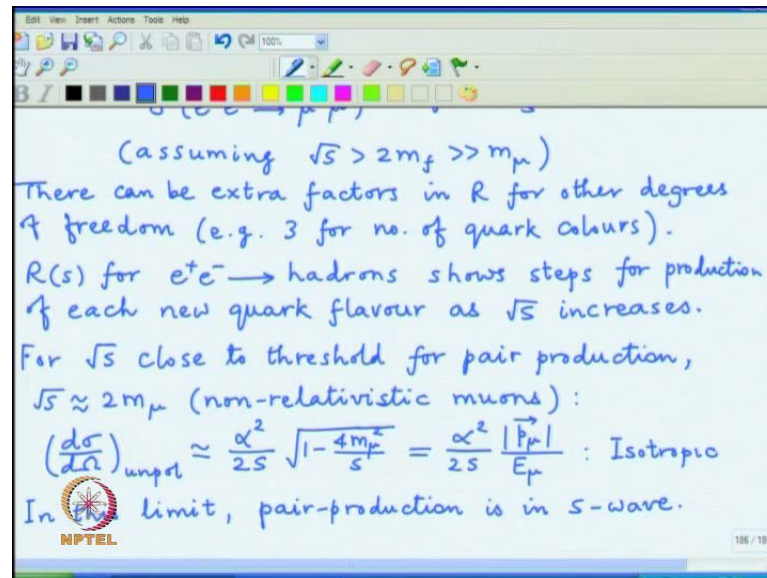 Edit View Insert Actions Tools Help
100%
B I
(assuming √s > 2m_f >> m_μ)
There can be extra factors in R for other degrees
of freedom (e.g. 3 for no. of quark colours).
R(s) for e⁺e⁻ → hadrons shows steps for production
of each new quark flavour as √s increases.
For √s close to threshold for pair production,
√s ≈ 2m_μ (non-relativistic muons) :
(dσ/dΩ)_unpol ≃ α²/2s √(1 - 4m_μ²/s) = α²/2s |p⃗_μ|/E_μ : Isotropic
In limit, pair-production is in s-wave.
NPTEL
186 / 18